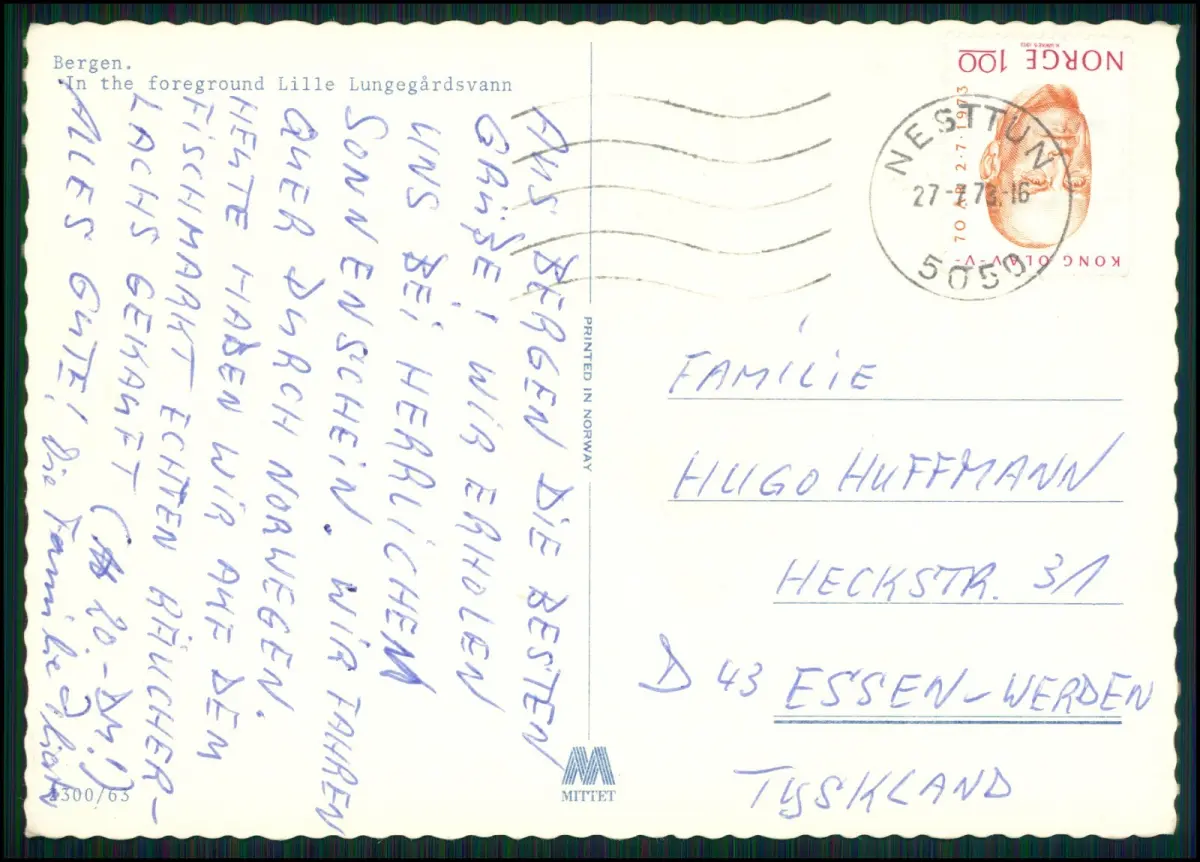 Bergen.
In the foreground Lille Lungegårdsvann
AUS BERGEN DIE BESTEN
GRÜßE! WIR ERHOLEN
UNS BEI HERRLICHEM
SONNENSCHEIN. WIR FAHREN
QUER DURCH NORWEGEN.
HEUTE HABEN WIR AUF DEM
FISCHMARKT ECHTEN RÄUCHER-
LACHS GEKAUFT (20.-DM!)
ALLES GUTE! Die Familie
PRINTED IN NORWAY
MITTET
300/63
NORGE 1.00
70 ÅR 2·7·1973
KONG OLAV·V·
NESTTUN
27-7.73.-16
5050
FAMILIE
HUGO HUFFMANN
HECKSTR. 31
D 43 ESSEN-WERDEN
TYSKLAND